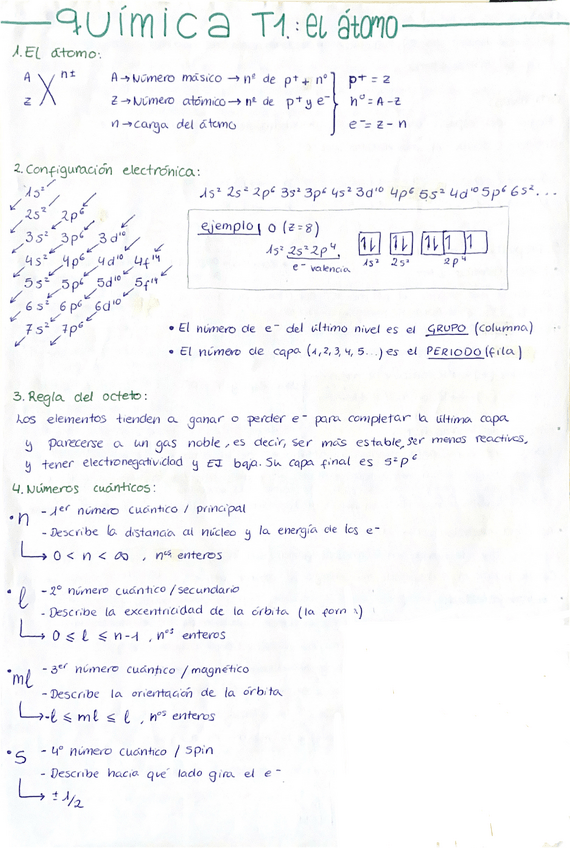 química T1.: el átomo
1. El átomo:
A X n± A → Número másico → nº de p+ + nº } p+ = z
z z → Número atómico → nº de p+ y e- nº = A - z
n → carga del átomo e- = z - n
2. Configuración electrónica:
1s² 1s² 2s² 2p⁶ 3s² 3p⁶ 4s² 3d¹⁰ 4p⁶ 5s² 4d¹⁰ 5p⁶ 6s² ...
2s² 2p⁶
3s² 3p⁶ 3d¹⁰
4s² 4p⁶ 4d¹⁰ 4f¹⁴
5s² 5p⁶ 5d¹⁰ 5f¹⁴
6s² 6p⁶ 6d¹⁰
7s² 7p⁶
ejemplo| O (z=8)
1s² 2s² 2p⁴
e- valencia
1s² 2s² 2p⁴
• El número de e- del último nivel es el GRUPO (columna)
• El número de capa (1,2,3,4,5...) es el PERIODO (fila)
3. Regla del octeto:
Los elementos tienden a ganar o perder e- para completar la última capa
y parecerse a un gas noble, es decir, ser más estable, ser menos reactivos,
y tener electronegatividad y EI baja. Su capa final es s²p⁶
4. Números cuánticos:
• n - 1er número cuántico / principal
- Describe la distancia al núcleo y la energía de los e-
→ 0 < n < ∞, nos enteros
• l - 2º número cuántico / secundario
- Describe la excentricidad de la órbita (la
→ 0 ≤ l ≤ n-1, nos enteros
• ml - 3er número cuántico / magnético
- Describe la orientación de la órbita
→ -l ≤ ml ≤ l, nos enteros
• s - 4º número cuántico / spin
- Describe hacia qué lado gira el e-
→ ± 1/2